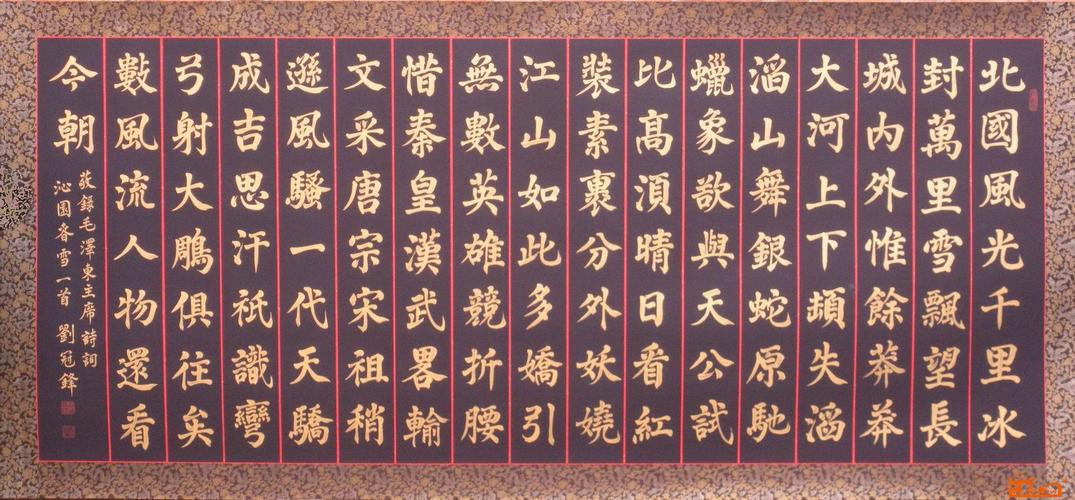 北國風光千里冰
封萬里雪飄望長
城内外惟餘莽莽
大河上下頓失滔
滔山舞銀蛇原馳
蠟象欲與天公試
比髙湏晴日看紅
裝素裹分外妖嬈
江山如此多嬌引
無數英雄競折腰
惜秦皇漢武畧輸
文采唐宗宋祖稍
遜風騷一代天驕
成吉思汗祇識彎
弓射大鵰俱往矣
數風流人物還看
今朝
敬錄毛澤東主席詩詞
沁園春雪一首 劉冠鋒